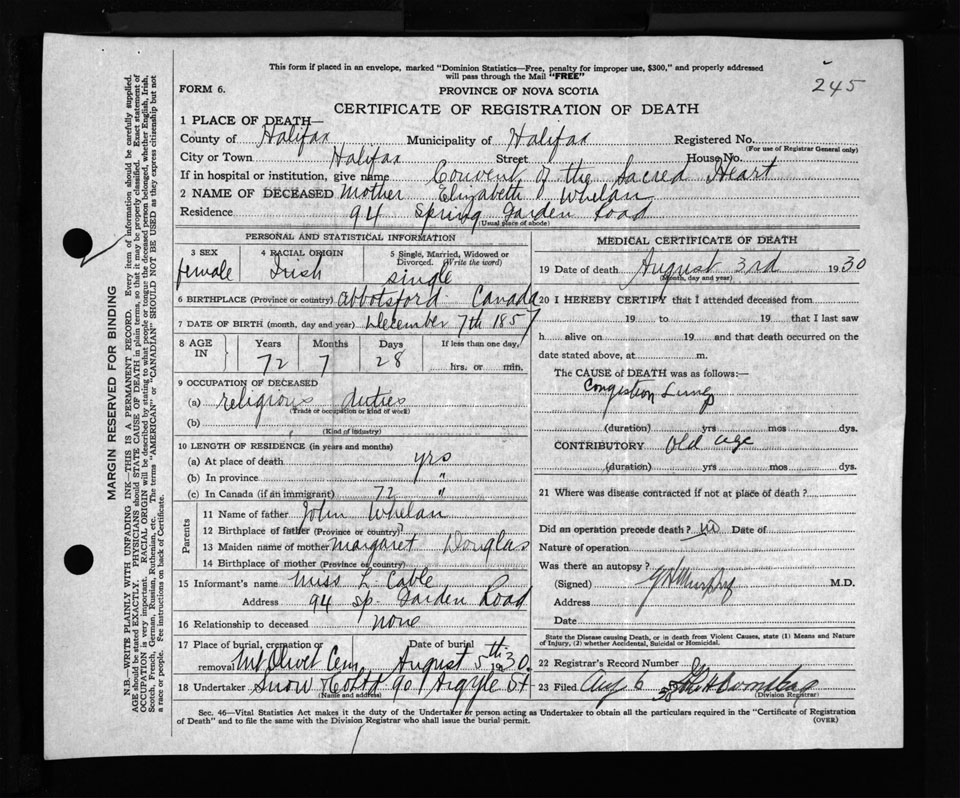 This form if placed in an envelope, marked "Dominion Statistics—Free, penalty for improper use, $300," and properly addressed
will pass through the Mail "FREE"
245
FORM 6.
PROVINCE OF NOVA SCOTIA
CERTIFICATE OF REGISTRATION OF DEATH
1 PLACE OF DEATH—
County of Halifax Municipality of Halifax Registered No.
(For use of Registrar General only)
City or Town Halifax Street House No.
If in hospital or institution, give name Convent of the Sacred Heart
2 NAME OF DECEASED Mother Elizabeth Whelan
Residence 94 Spring Garden Road
(Usual place of abode)
PERSONAL AND STATISTICAL INFORMATION
3 SEX female
4 RACIAL ORIGIN Irish
5 Single, Married, Widowed or Divorced. (Write the word) single
6 BIRTHPLACE (Province or country) Abbotsford Canada
7 DATE OF BIRTH (month, day and year) December 7th 1857
8 AGE IN Years Months Days If less than one day,
72 7 28 hrs. or min.
9 OCCUPATION OF DECEASED
(a) religious duties
(Trade or occupation or kind of work)
(b)
(Kind of industry)
10 LENGTH OF RESIDENCE (in years and months)
(a) At place of death yrs
(b) In province "
(c) In Canada (if an immigrant) 72 "
Parents
11 Name of father John Whelan
12 Birthplace of father (Province or country) ?
13 Maiden name of mother Margaret Douglas
14 Birthplace of mother (Province or country)
15 Informant's name Miss L. Cable
Address 94 Sp. Garden Road
16 Relationship to deceased none
17 Place of burial, cremation or removal Mt Olivet Cem Date of burial August 5th 1930.
18 Undertaker Snow & Co Ltd 90 Argyle St
(Name and address)
MEDICAL CERTIFICATE OF DEATH
19 Date of death August 3rd 1930
(Month, day and year)
20 I HEREBY CERTIFY that I attended deceased from
19 to 19 that I last saw
h alive on 19 and that death occurred on the
date stated above, at m.
The CAUSE of DEATH was as follows:—
Congestion Lungs
(duration) yrs mos dys.
CONTRIBUTORY Old age
(duration) yrs mos dys.
21 Where was disease contracted if not at place of death?
Did an operation precede death? no Date of
Nature of operation
Was there an autopsy?
(Signed) G H Murphy M.D.
Address
Date
State the Disease causing Death, or in death from Violent Causes, state (1) Means and Nature
of Injury, (2) whether Accidental, Suicidal, or Homicidal.
22 Registrar's Record Number
23 Filed Aug 6
(Division Registrar)
Sec. 46—Vital Statistics Act makes it the duty of the Undertaker or person acting as Undertaker to obtain all the particulars required in the "Certificate of Registration
of Death" and to file the same with the Division Registrar who shall issue the burial permit.
(OVER)
MARGIN RESERVED FOR BINDING
N.B.—WRITE PLAINLY WITH UNFADING INK—THIS IS A PERMANENT RECORD. Every item of information should be carefully supplied.
AGE should be stated EXACTLY. PHYSICIANS should STATE CAUSE OF DEATH in plain terms, so that it may be properly classified. Exact statement of
OCCUPATION is very important. RACIAL ORIGIN will be described by stating to what people or tongue the deceased person belonged, whether English, Irish,
Scotch, French, German, Russian, Ruthenian, etc. The terms "AMERICAN" or "CANADIAN" SHOULD NOT BE USED as they express citizenship but not
a race or people. See instructions on back of Certificate.